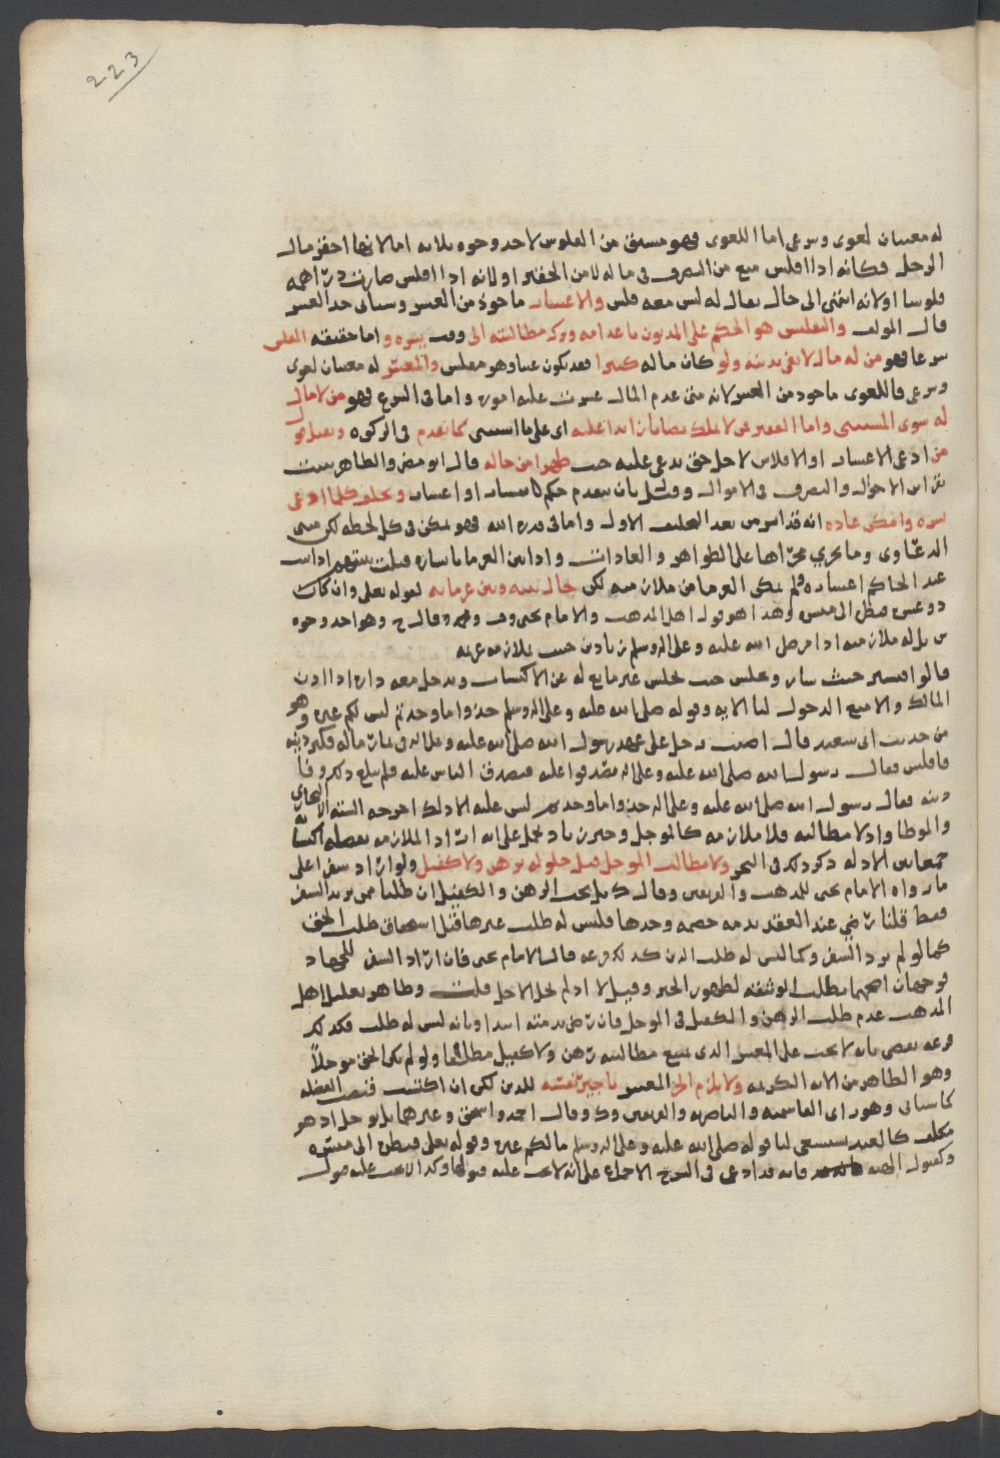 223
له معنيان لغوى وشرعى اما اللغوى فهو مشتق من الفلوس لاحد وجوه ثلاثه اما لانها احقر مال
الرجل فكانه اذا افلس منع من التصرف فى ماله الا من الحقير او لانه اذا افلس صارت دراهمه
فلوسا او لانه انتهى الى حال يقال له ليس معه فلس والاعسار ماخوذ من العسر وسياتى حد العسر
قال المولف والتفليس هو الحكم على المديون باعدامه وترك مطالبته الى وقت يسره واما حقيقه المفلس
شرعا فهو من له مال لا يفى بدينه ولو كان ماله كثيرا فقد يكون غنيا وهو مفلس والمعسر له معنيان لغوى
وشرعى فاللغوى ماخوذ من العسر لانه متى عدم المال عسرت عليه اموره واما فى الشرع فهو من لا مال
له سوى المستثنى واما الفقير فمن لا يملك نصابا زائدا عليه اى على ما استثنى كما تقدم فى الزكوه ويقبل قول
من ادعى الاعسار او الافلاس لاجل حق يدعى عليه حيث ظهرا من حاله قال ابو مضر والظاهر يثبت
بقرائن الاحوال والتصرف فى الاموال وقيل بان يتقدم حكم بايسار او اعسار ويحلف كلما ادعى
يسره وامكن عاده انه قد ايسر من بعد التحليف الاول واما فى قدره الله فهو يمكن فى كل لحظه لكن مبنى
الدعاوى وما يجرى مجراها على الظواهر والعادات واذا بين الغرما باياسره قبلت بينتهم اذا ثبت
عند الحاكم اعساره فلم يمكن الغرما من ملازمته لكن يحال بينه وبين غرمائه لقوله تعالى وان كان
ذو عسره فنظره الى ميسره وهذا هو قول اهل المذهب والامام يحيى وف ومحمد وقال ح وهو احد وجوه
ش بل له ملازمته اذ امر صلى الله عليه وعلى اله وسلم بن بادين حيث بملازمه غريمه
قالوا فيسير حيث سار ويجلس حيث يجلس غير مانع له عن الاكتساب ويدخل معه داره اذا اذن
المالك والا منع الدخول لنا الايه وقوله صلى الله عليه وعلى اله وسلم خذوا ما وجدتم ليس لكم غيره وهو
من حديث ابى سعيد قال اصيب رجل على عهد رسول الله صلى الله عليه وعلى اله فى ثمار ماله فكثر دينه
فافلس فقال رسول الله صلى الله عليه وعلى اله تصدقوا عليه فتصدق الناس عليه فلم يبلغ ذلك وفا
دينه فقال رسول الله صلى الله عليه وعلى اله خذوا ما وجدتم ليس عليه الا ذلك اخرجه السته الا البخارى
والموطا واذ لا مطالبه فلا ملازمه كالموجل وخبر بن باد يحمل على انه اراد الملازمه بفضله اكتسابه
جمعا بين الادله ذكر ذلك فى البحر ولا يطالب الموجل قبل حلوله برهن ولا كفيل ولو اراد سفرا على
ما رواه الامام يحيى للمذهب والفريقين وقال ك بل يجب الرهن والكفيل ان طلبا ممن يريد السفر
فقط قلنا رضى عند العقد بذمه خصمه وحدها فليس له طلب غيرها قبل استحقاق طلب الحق
كما لو لم يرد السفر وكما ليس له طلب الدين كذلك فرعه قال الامام يحيى فان اراد السفر للجهاد
فوجهان اصحهما يطلب الوثيقه لظهور الخبر وقيل لا اذ لم يحل الاجل قلت وظاهر تعليل اهل
المذهب عدم طلب الرهن والكفيل فى الموجل فان رضى بذمته ابتدا وبانه ليس له طلب فكذلك
فرعه يقضى بانه لا يجب على المعسر الذى يمنع مطالبته رهن ولا كفيل مطلقا ولو لم يكن الحق موجلا
وهو الظاهر من الايه الكريمه ولا يلزم الحر المعسر تاجير نفسه للدين لكن ان اكتسب قبض الفضله
كما سياتى وهو راى القاسميه والناصريه والفريقين وك وقال احمد واسحق وغيرهما بل يوجل اذ هو
مكلف كالعبد يستسعى لنا قوله صلى الله عليه وعلى اله وسلم مالكم غيره وقوله تعالى فنظره الى ميسره
وكقبول الهبه فانه قد ادعى فى الشرح الاجماع على انه لا يجب عليه قبولها وكذا لا يجب عليه قبول